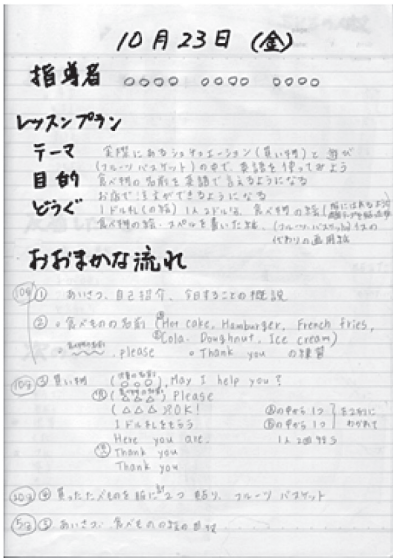 10月23日(金)
指導者 ○○○○ ○○○○ ○○○○
レッスンプラン
テーマ 実際にあるシチュエーション(買い物)と遊び
(フルーツバスケット)の中で、英語を使ってみよう
目的 食べ物の名前を英語で言えるようになる
お店で注文ができるようになる
どうぐ 1ドル札(の絵)1人2ドル分、食べ物の絵
食べ物の絵・スペルを書いた紙、(フルーツバスケット)イスの
代わりの画用紙
おおまかな流れ
10分 ① あいさつ、自己紹介、今日することの概説
② ・食べものの名前 (Hot cake, Hamburger, French fries,
Cola, Doughnut, Ice cream)
・ , please ・Thank you の練習
10分 ③ 買い物 (○○○), May I help you?
(△△△) Please
(△△△)? OK!
1ドル札をもらう
Here you are.
Thank you
Thank you
Ⓐの中から1つ
Ⓑの中から1つ
を2列に
わかれて
1人2回
20分 ④ 買った食べものを 2つ貼り、フルーツバスケット
5分 ⑤ あいさつ、食べものの絵の回収